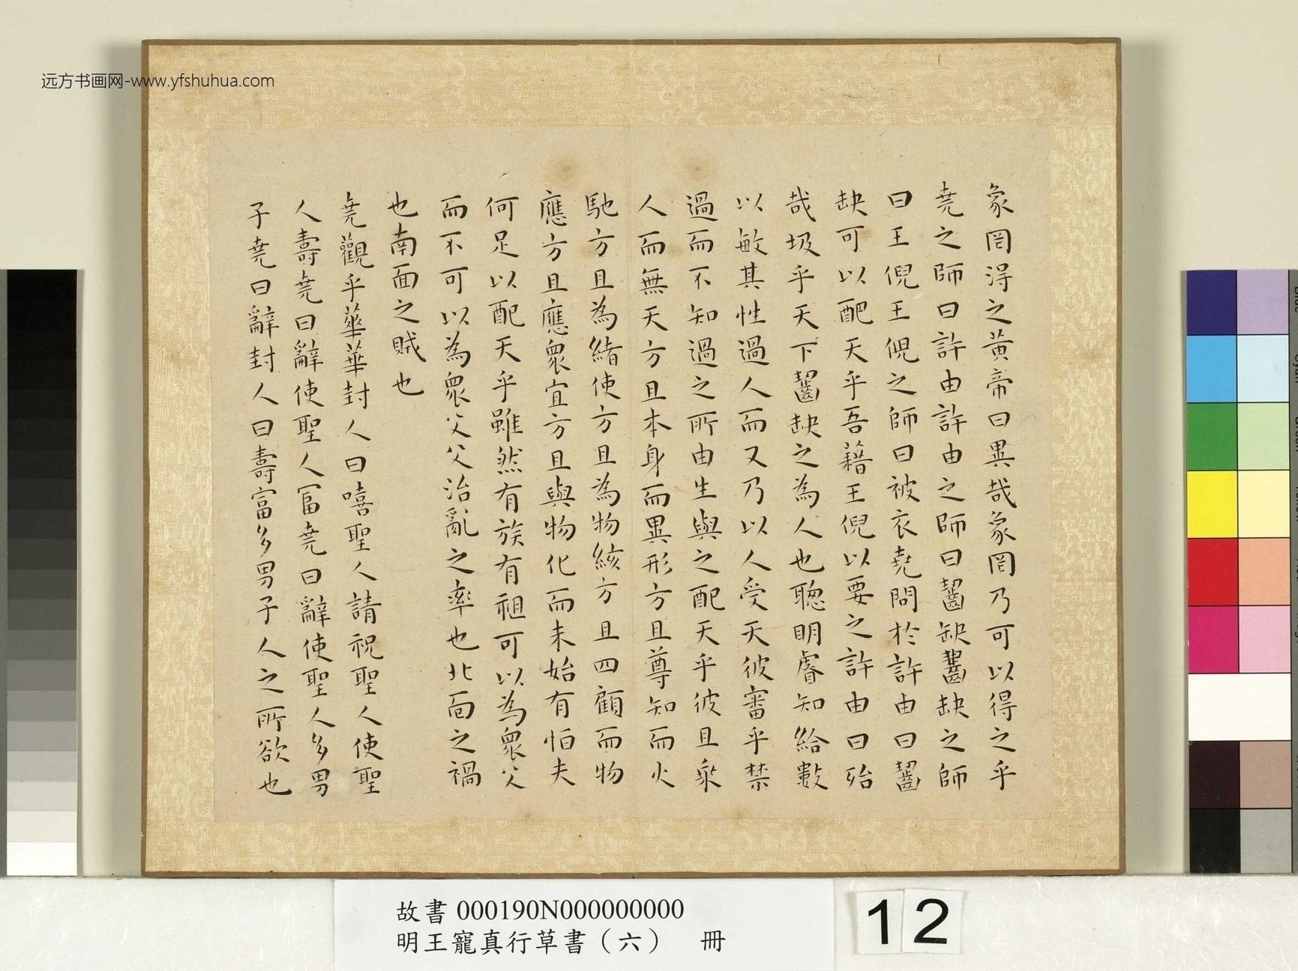 远方书画网-www.yfshuhua.com
象罔淂之黃帝曰異哉象罔乃可以得之乎
堯之師曰許由許由之師曰齧缺齧缺之師
曰王倪王倪之師曰被衣堯問於許由曰齧
缺可以配天乎吾藉王倪以要之許由曰殆
哉圾乎天下齧缺之為人也聰明睿知給數
以敏其性過人而又乃以人受天彼審乎禁
過而不知過之所由生與之配天乎彼且乘
人而無天方且本身而異形方且尊知而火
馳方且為緒使方且為物絯方且四顧而物
應方且應衆宜方且與物化而未始有怕夫
何足以配天乎雖然有族有祖可以為衆父
而不可以為衆父父治亂之率也北面之禍
也南面之賊也
堯觀乎華華封人曰嘻聖人請祝聖人使聖
人壽堯曰辭使聖人富堯曰辭使聖人多男
子堯曰辭封人曰壽富多男子人之所欲也
故書 000190N000000000
明王寵真行草書（六） 冊
12